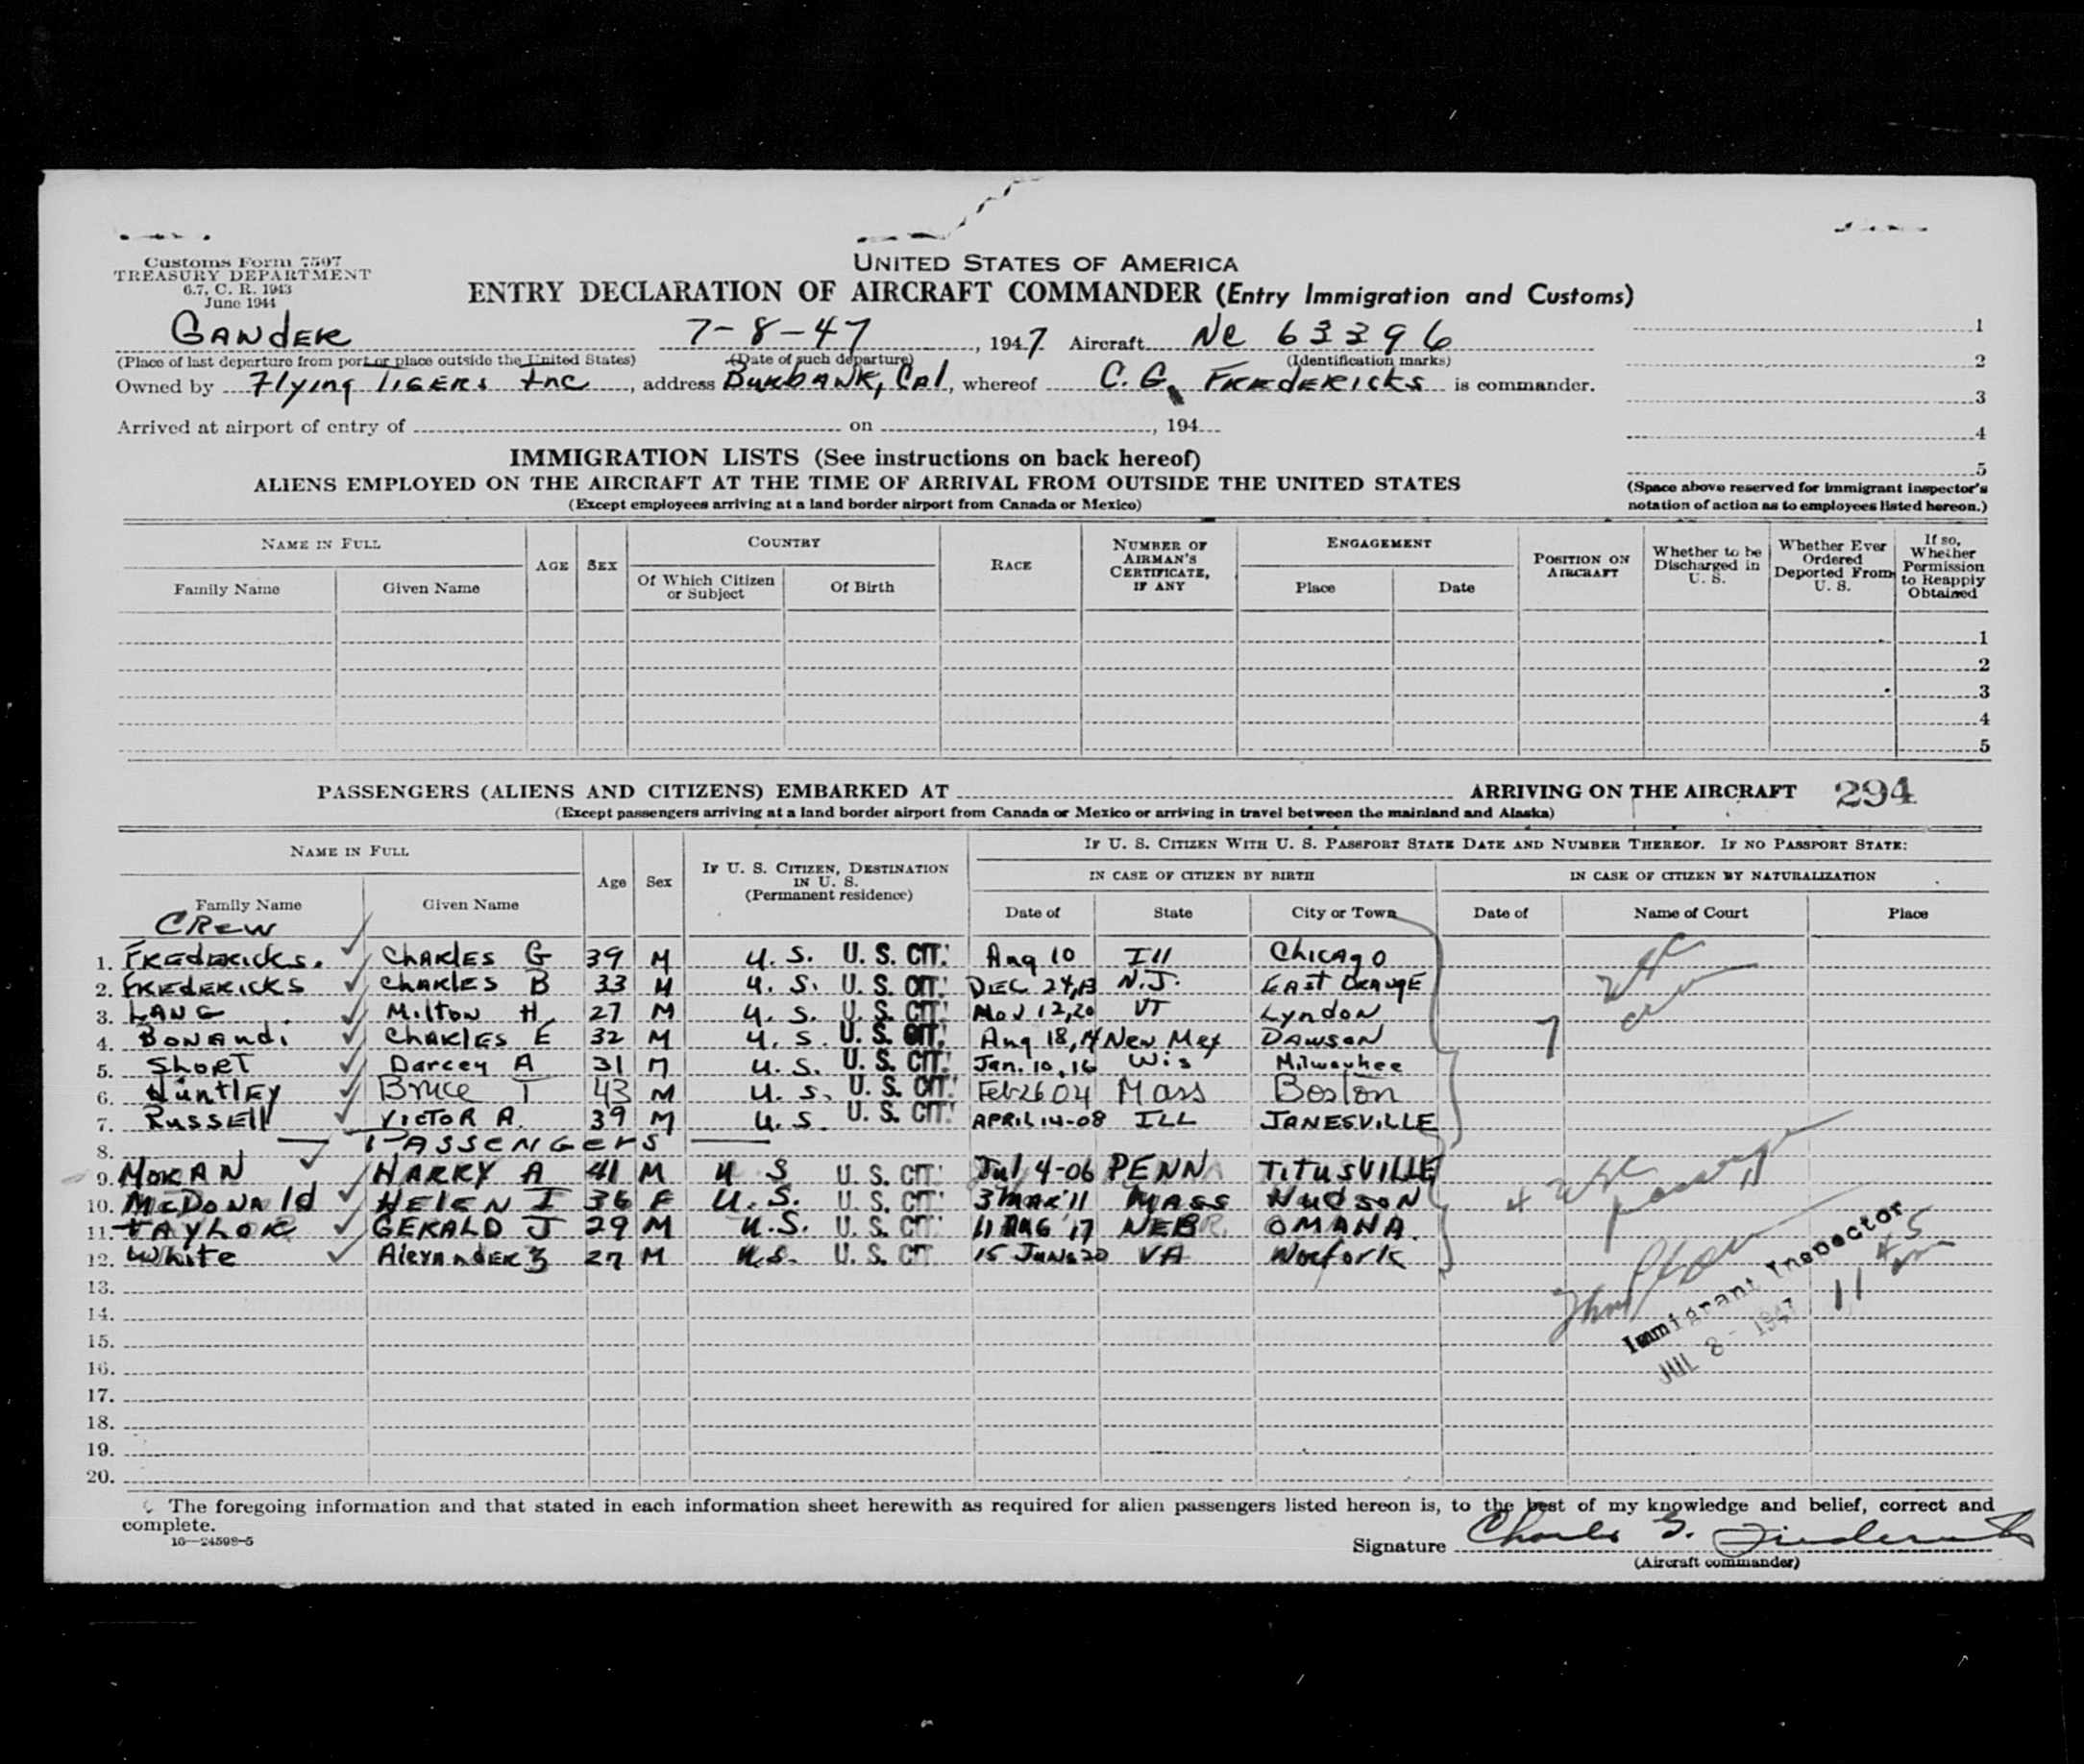 Customs Form 7507
TREASURY DEPARTMENT
6.7, C. R. 1943
June 1944
UNITED STATES OF AMERICA
ENTRY DECLARATION OF AIRCRAFT COMMANDER (Entry Immigration and Customs)
GANDER 7-8-47, 1947 Aircraft NC 63396
(Place of last departure from port or place outside the United States) (Date of such departure) (Identification marks)
Owned by Flying TIGERS Inc, address BURBANK, CAl, whereof C. G. FREDERICKS is commander.
Arrived at airport of entry of on , 194
1
2
3
4
5
(Space above reserved for immigrant inspector's
notation of action as to employees listed hereon.)
IMMIGRATION LISTS (See instructions on back hereof)
ALIENS EMPLOYED ON THE AIRCRAFT AT THE TIME OF ARRIVAL FROM OUTSIDE THE UNITED STATES
(Except employees arriving at a land border airport from Canada or Mexico)
NAME IN FULL AGE SEX COUNTRY RACE NUMBER OF AIRMAN'S CERTIFICATE, IF ANY ENGAGEMENT POSITION ON AIRCRAFT Whether to be Discharged in U. S. Whether Ever Ordered Deported From U. S. If so, Whether Permission to Reapply Obtained
Family Name Given Name Of Which Citizen or Subject Of Birth Place Date
1
2
3
4
5
PASSENGERS (ALIENS AND CITIZENS) EMBARKED AT ARRIVING ON THE AIRCRAFT 294
(Except passengers arriving at a land border airport from Canada or Mexico or arriving in travel between the mainland and Alaska)
NAME IN FULL Age Sex IF U. S. CITIZEN, DESTINATION IN U. S. (Permanent residence) IF U. S. CITIZEN WITH U. S. PASSPORT STATE DATE AND NUMBER THEREOF. IF NO PASSPORT STATE:
IN CASE OF CITIZEN BY BIRTH IN CASE OF CITIZEN BY NATURALIZATION
Family Name Given Name Date of State City or Town Date of Name of Court Place
CREW
1. FREDERICKS. CHARLES G 39 M U. S. U. S. CIT. Aug 10 Ill Chicago
2. FREDERICKS CHARLES B 33 M U. S. U. S. CIT. DEC 24,13 N.J. EAST ORANGE
3. LANG Milton H 27 M U. S. U. S. CIT. Nov 12,20 VT Lyndon
4. BONANDI CHARLES E 32 M U. S. U. S. CIT. Aug 18,14 New Mex DAWSON
5. SHORT Darcey A 31 M U. S. U. S. CIT. Jan. 10,16 Wis Milwaukee
6. HuntlEy Bruce T 43 M U. S. U. S. CIT. Feb 26 04 Mass Boston
7. RussEll VICTOR A. 39 M U. S. U. S. CIT. APRIL 14-08 ILL JANESVILLE
7 USC
crew
8. PASSENGERS
9. MORAN HARRY A 41 M U S U. S. CIT. Jul 4-06 PENN TITUSVILLE
10. McDonald HELEN I 36 F U.S. U. S. CIT. 3 MAR '11 MASS HUDSON
11. TAYLOR GERALD J 29 M U.S. U. S. CIT. 11 AUG '17 NEBR. OMAHA.
12. White AlexANDER 27 M U.S. U. S. CIT 15 JUNE 20 VA Norfork
4 USC
Immigrant Inspector
JUL 8 - 1947
11 45
13.
14.
15.
16.
17.
18.
19.
20.
The foregoing information and that stated in each information sheet herewith as required for alien passengers listed hereon is, to the best of my knowledge and belief, correct and
complete.
16—24598-5
Signature Charles G. Fredericks
(Aircraft commander)